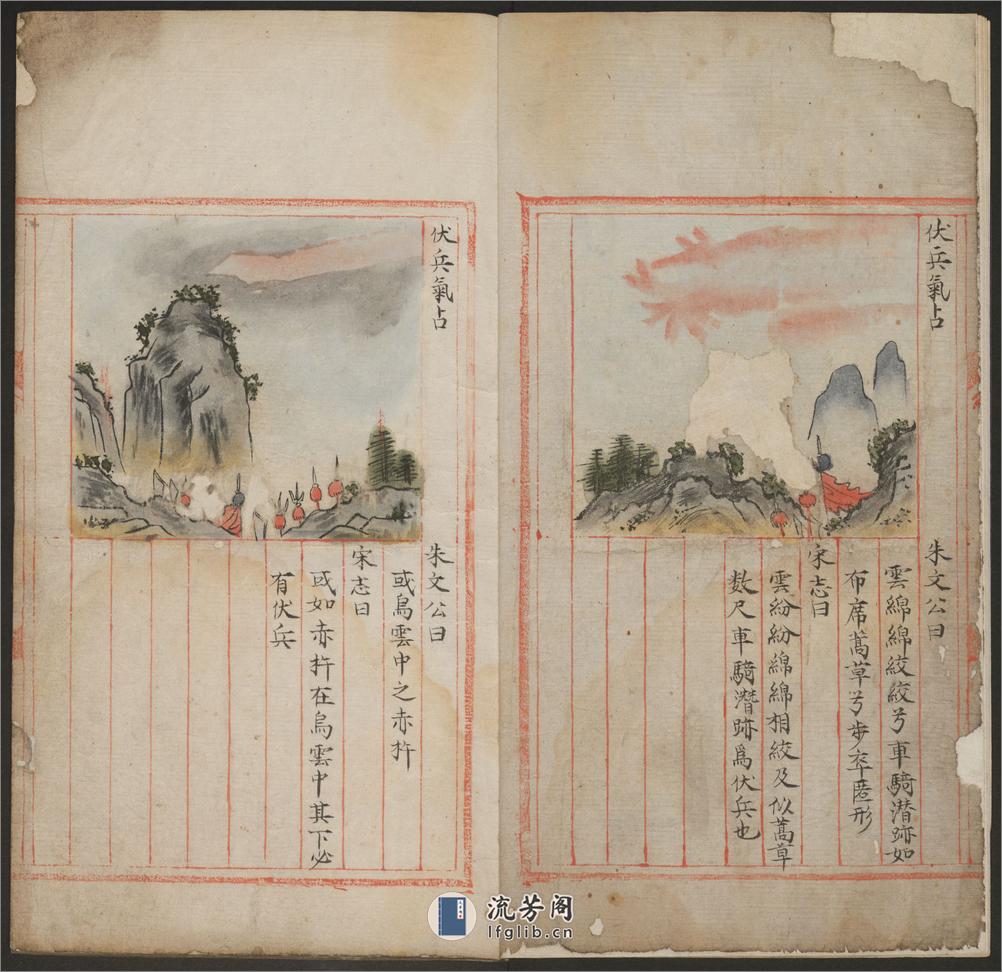 伏兵氣占
朱文公曰
雲綿綿絞絞兮車騎潛跡如
布席蒿草兮步卒匿形
宋志曰
雲紛紛綿綿相絞及似蒿草
数尺車騎潛跡爲伏兵也
伏兵氣占
朱文公曰
或烏雲中之赤杵
宋志曰
或如赤杵在烏雲中其下必
有伏兵
流芳阁
lfglib.cn